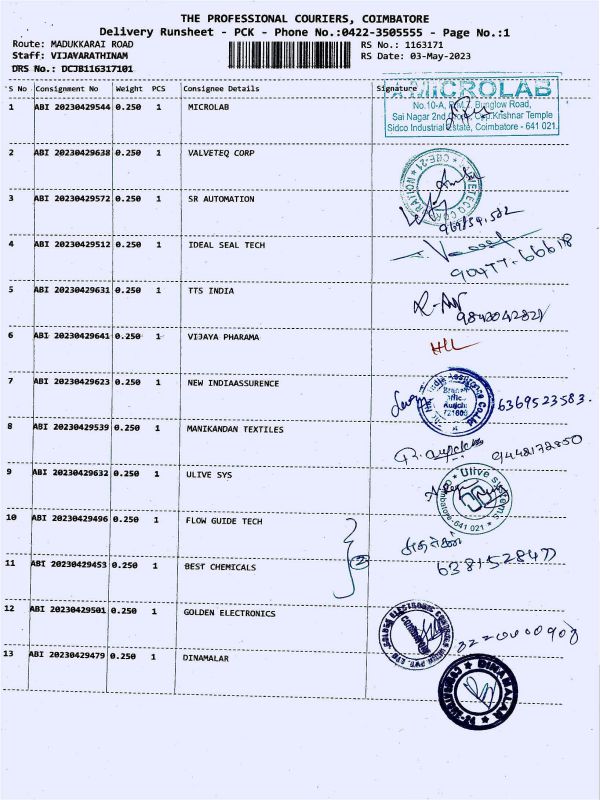 THE PROFESSIONAL COURIERS, COIMBATORE
Delivery Runsheet - PCK - Phone No.:0422-3505555 - Page No.:1
Route: MADUKKARAI ROAD RS No.: 1163171
Staff: VIJAVARATHINAM RS Date: 03-May-2023
DRS No.: DCJB116317101
S No Consignment No Weight PCS Consignee Details Signature
MICROLAB
1 ABI 20230429544 0.250 1 MICROLAB
No.10-A, Bunglow Road,
Sai Nagar 2nd Krishnar Temple
Sidco Industrial Estate, Coimbatore - 641 021.
2 ABI 20230429638 0.250 1 VALVETEQ CORP
3 ABI 20230429572 0.250 1 SR AUTOMATION
4 ABI 20230429512 0.250 1 IDEAL SEAL TECH
90477-66618
5 ABI 20230429631 0.250 1 TTS INDIA
9842042821
6 ABI 20230429641 0.250 1 VIJAYA PHARAMA
7 ABI 20230429623 0.250 1 NEW INDIAASSURENCE
6369523583.
8 ABI 20230429539 0.250 1 MANIKANDAN TEXTILES
9 ABI 20230429632 0.250 1 ULIVE SYS
Ulive systems
Coimbatore-641 021
10 ABI 20230429496 0.250 1 FLOW GUIDE TECH
2
11 ABI 20230429453 0.250 1 BEST CHEMICALS
6381528477
12 ABI 20230429501 0.250 1 GOLDEN ELECTRONICS
13 ABI 20230429479 0.250 1 DINAMALAR
DINAMALAR